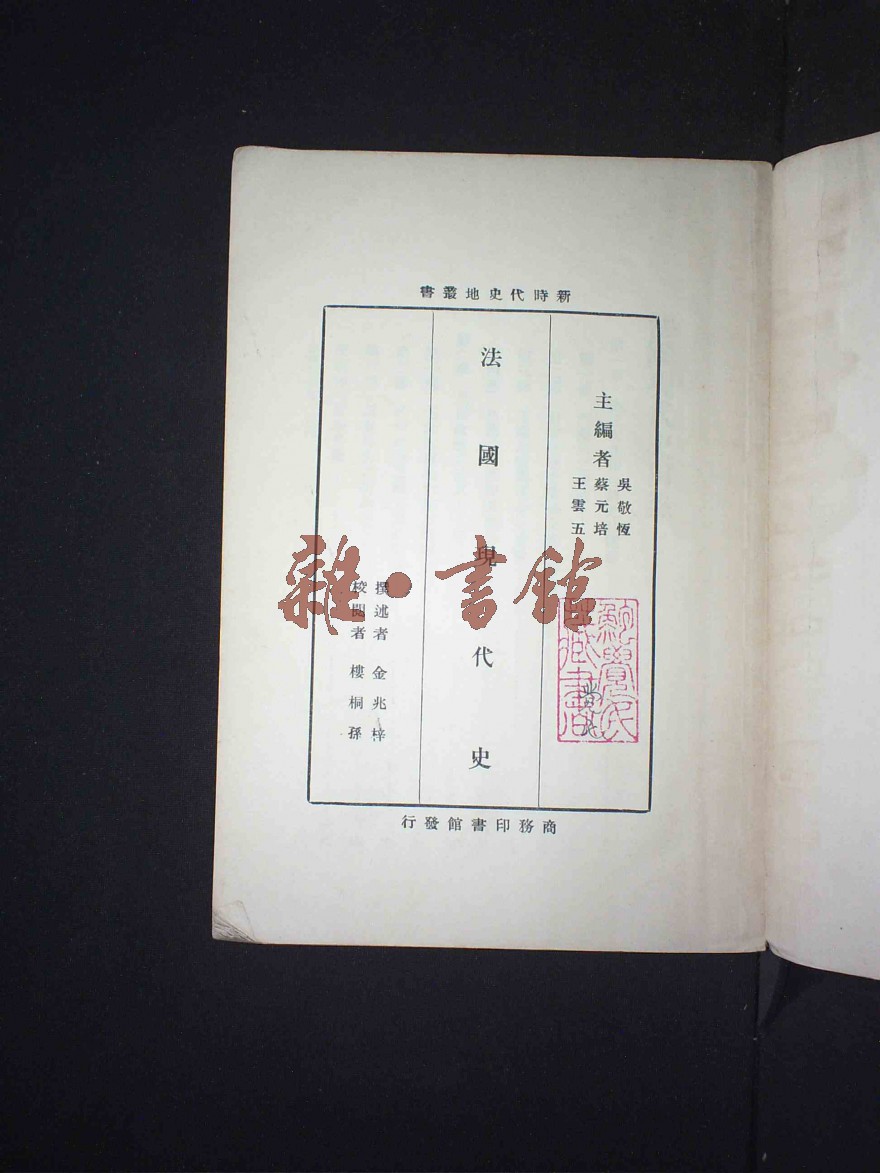 新時代史地叢書
主編者
吳敬恆
蔡元培
王雲五
法國現代史
撰述者 金兆梓
校閱者 樓桐孫
商務印書館發行
雜·書館